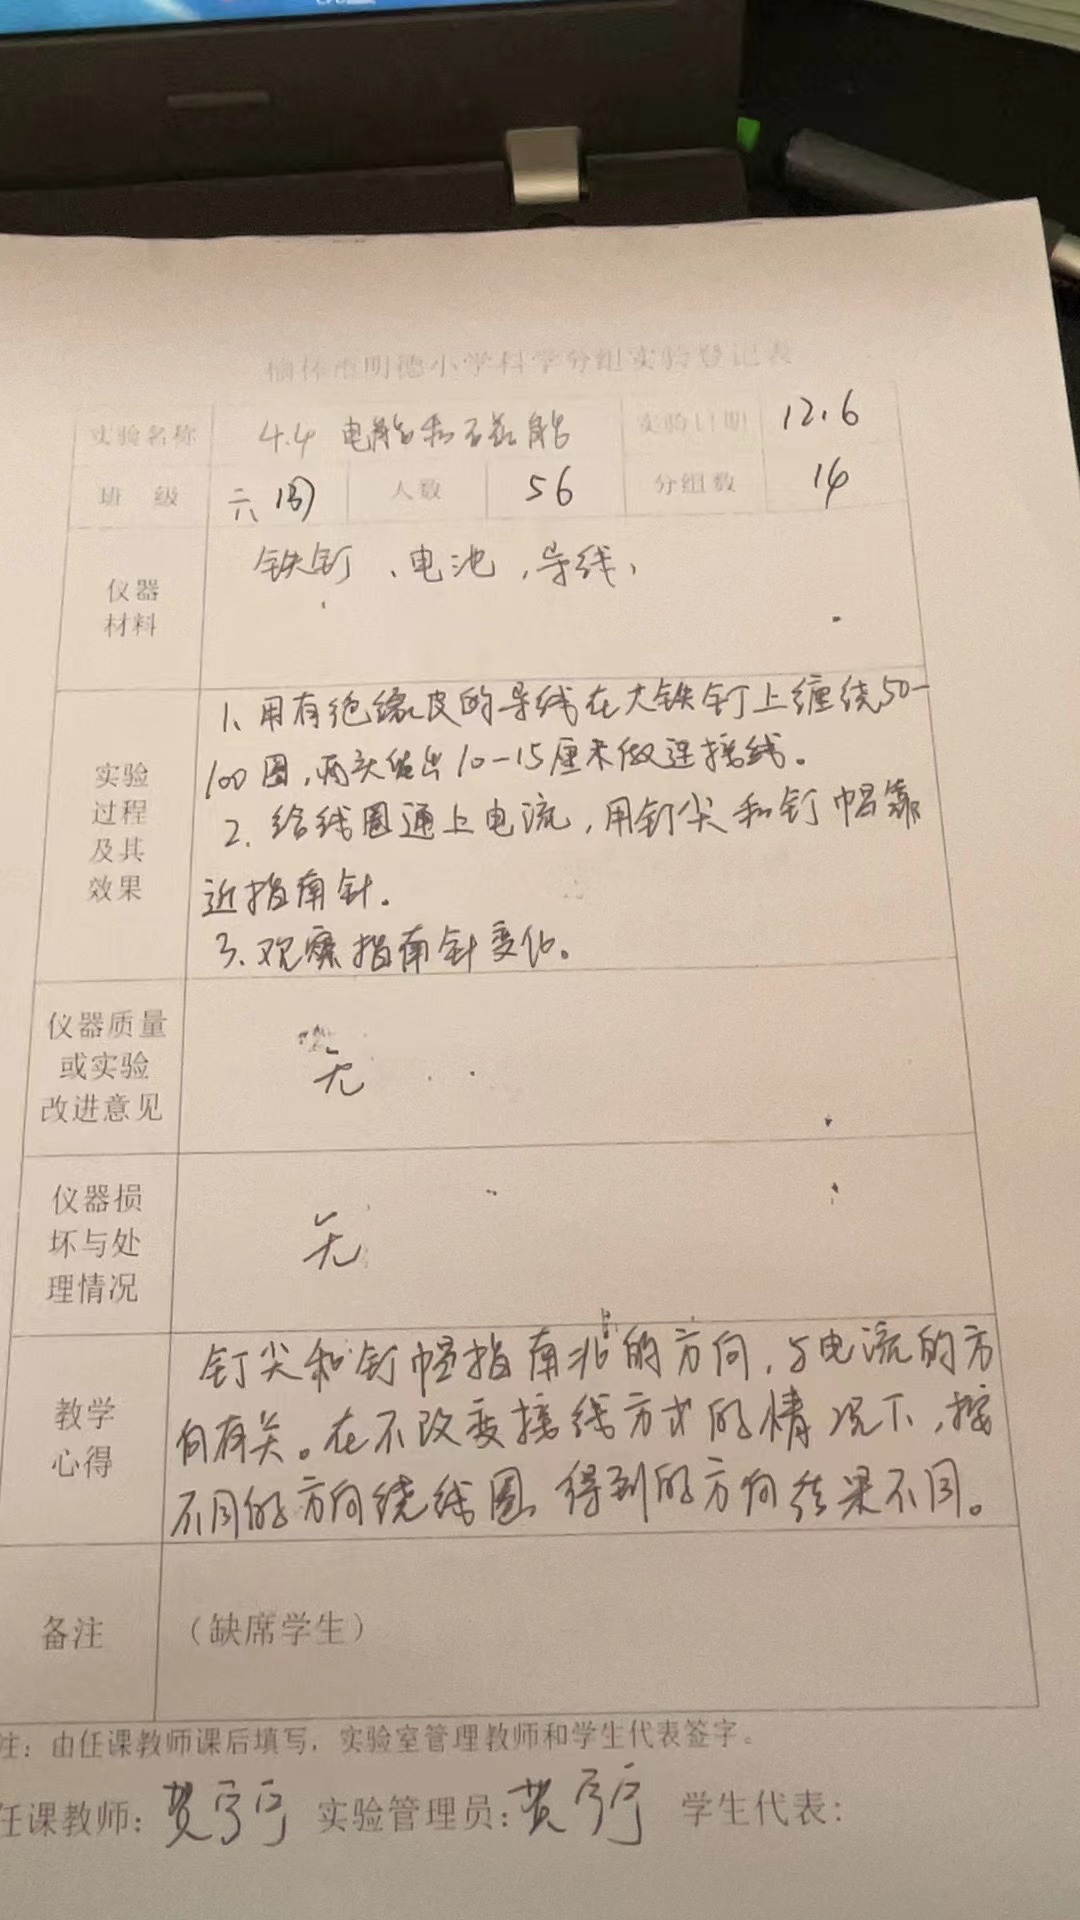 榆林市明德小学科学分组实验登记表
实验名称 4.4 电能和磁能 实验日期 12.6
班 级 人数 56 分组数 14
铁钉、电池，导线，
仪器
材料
1、用有绝缘皮的导线在大铁钉上缠绕50-
100圈，两头留出10-15厘米做连接线。
2、给线圈通上电流，用钉尖和钉帽靠
近指南针。
3、观察指南针变化。
实验
过程
及其
效果
仪器质量
或实验
改进意见
无
仪器损
坏与处
理情况
无
钉尖和钉帽指南北的方向，与电流的方
向有关。在不改变接线方式的情况下，按
不同的方向绕线圈，得到的方向结果不同。
教学
心得
备注 （缺席学生）
注：由任课教师课后填写，实验室管理教师和学生代表签字。
任课教师： 实验管理员： 学生代表：